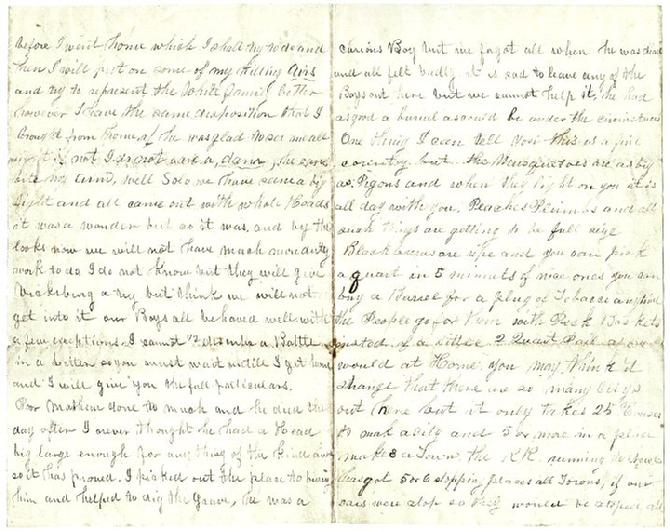 before I went home which I shall try to do and
then I will put on some of my killing Airs
and try to represent the White family better
however I have the same disposition that I
brought from home, if he was glad to see me all
right if not I do not care a damn, he
bite my arm, Well Solo we have seen a big
fight and all came out with whole Heads
it was a wonder but so it was, and by the
looks now we will not have much more dirty
work to do I do not Know but they will give
Vicksburg a try but think we will not
get into it our Boys all behaved well with
a few exceptions I cannot describe a Battle
in a letter so you must wait untill I get home
and I will give you the full particulars.
Poor Mathew gone to much and he died the
day after I never thought he had a Head
big large enough for any thing of the kind and
so it has proved. I picked out the place to bury
him and helped to dig the Grave, he was a
curious Boy but we forgot all when he was dead
and all felt badly it is sad to leave any of the
Boys out here but we cannot help it, he had
as good a burial as could be under the circumstances
One thing I can tell You this is a fine
country but the Musquetoes are as big
as Pigons and when they light on you it is
all day with you, Peaches Plumbs and all
such things are getting to be full size
Blackberries are ripe and you can pick
a quart in 5 minuits of nice ones you can
buy a Bussel for a plug of Tobacco any time
the People go for them with Peck Baskets
insted of a little 2 Quart Pail as we
would at Home you may think it
strange that there are so many citys
out here but it only takes 25 Houses
to mak a city and 5 or more in a place
makes a Town, the R.R. running to
has got 5 or 6 stopping places all Towns, if our
cars were stop so they would be stoped all